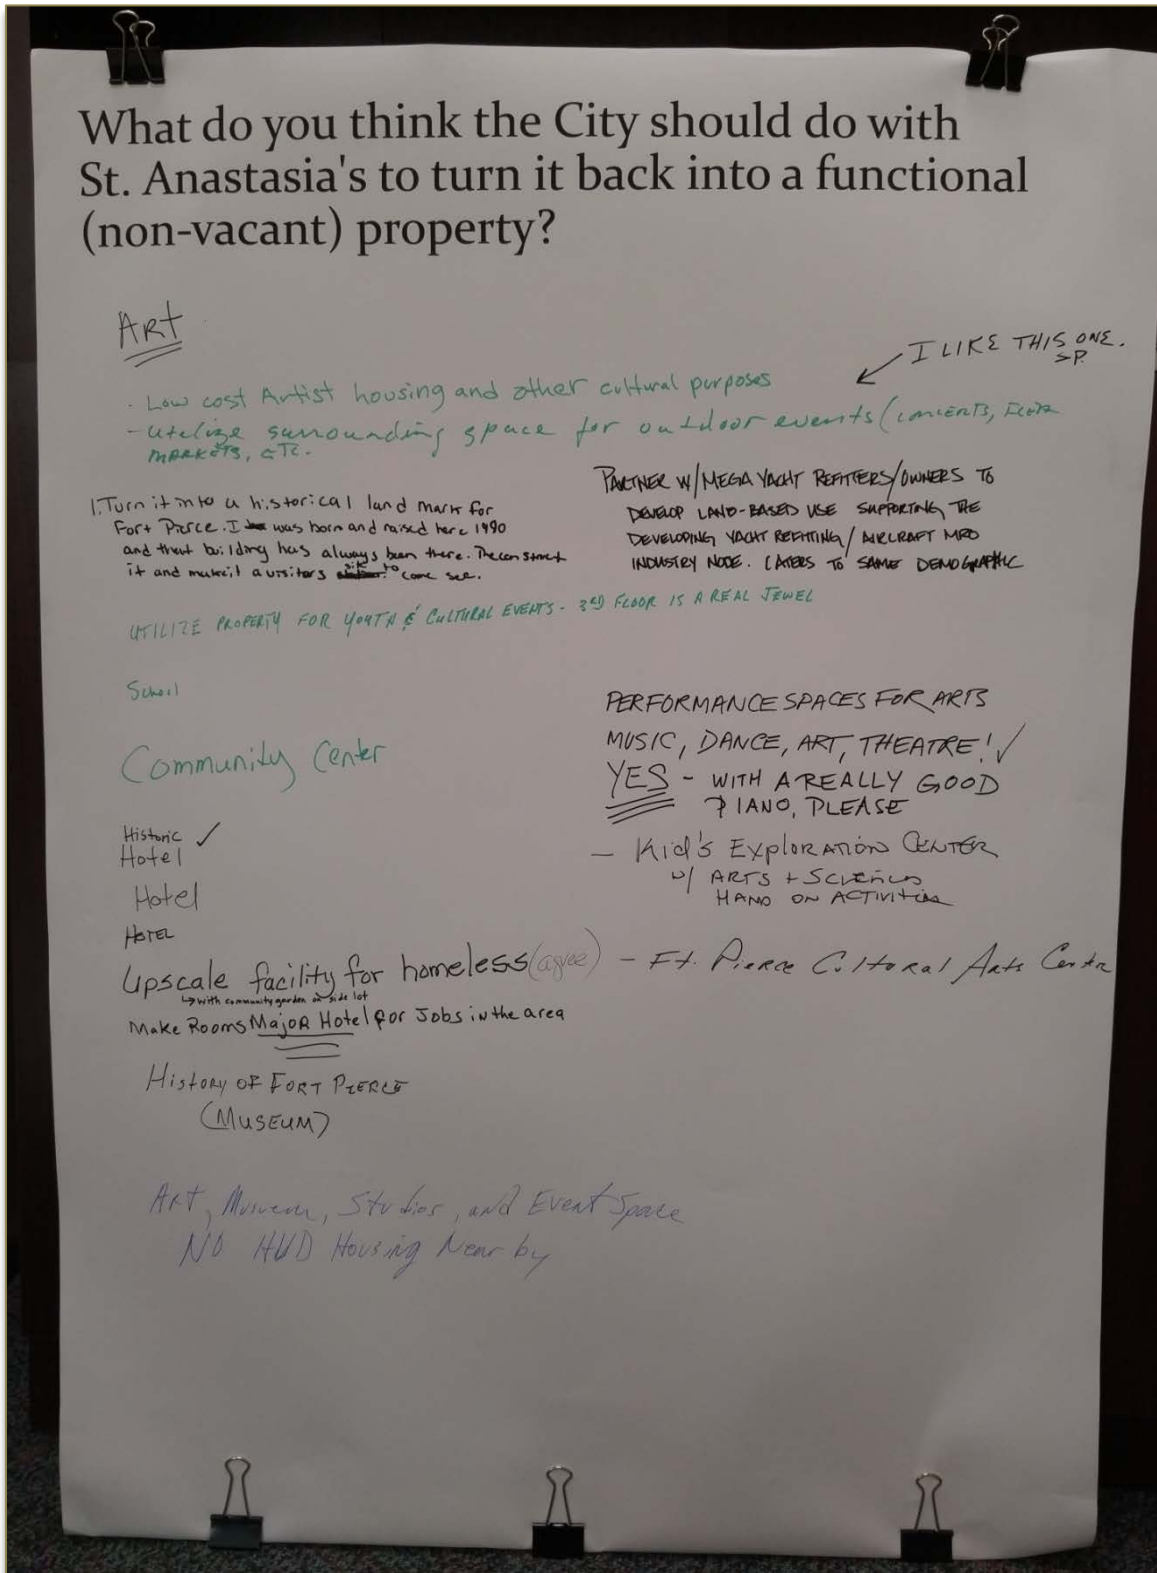 What do you think the City should do with
St. Anastasia's to turn it back into a functional
(non-vacant) property?
ART
I LIKE THIS ONE.
S.P.
· Low cost Artist housing and other cultural purposes
- Utilize surrounding space for outdoor events (CONCERTS, FLEA
MARKETS, ETC.
1. Turn it into a historical land mark for
Fort Pierce. I was born and raised here 1990
and that building has always been there.
it and make it a visitors site to come see.
PARTNER W/ MEGA YACHT REFITTERS/OWNERS TO
DEVELOP LAND-BASED USE SUPPORTING THE
DEVELOPING YACHT REFITTING / AIRCRAFT MRO
INDUSTRY NODE. CATERS TO SAME DEMOGRAPHIC
UTILIZE PROPERTY FOR YOUTH & CULTURAL EVENTS - 3RD FLOOR IS A REAL JEWEL
School
Community Center
Historic ✓
Hotel
Hotel
HOTEL
Upscale facility for homeless (agree)
↳ with community garden on side lot
Make Rooms Major Hotel for Jobs in the area
History OF FORT PIERCE
(MUSEUM)
PERFORMANCE SPACES FOR ARTS
MUSIC, DANCE, ART, THEATRE! ✓
YES - WITH A REALLY GOOD
PIANO, PLEASE
- Kid's Exploration CENTER
w/ ARTS + Sciences
HAND ON ACTIVITIES
- Ft. Pierce Cultural Arts Center
Art, Museum, Studios, and Event Space
NO HUD Housing Near by